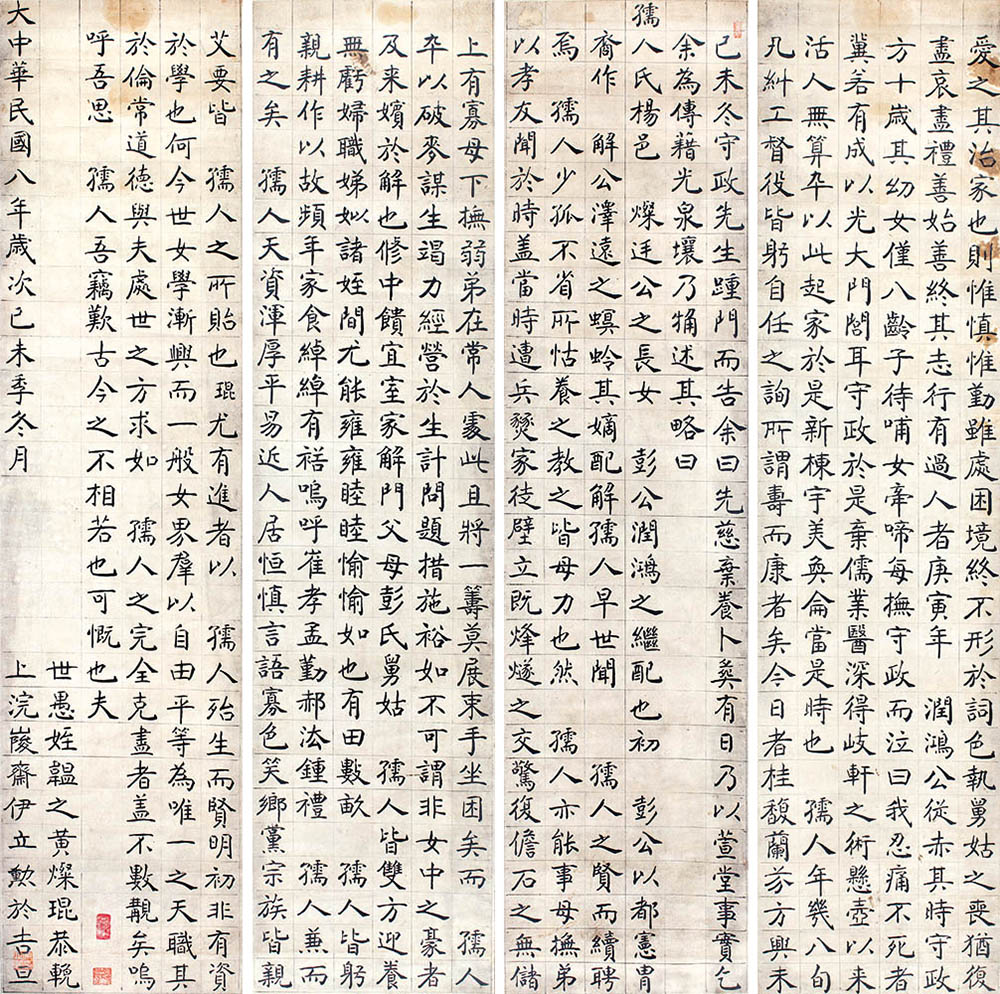 愛之其治家也則惟慎惟勤雖處困境終不形於詞色執舅姑之喪猶復
盡哀盡禮善始善終其志行有過人者庚寅年 潤鴻公從赤其時守政
方十歲其幼女僅八齡子待哺女啼啼每撫守政而泣曰我忍痛不死者
冀若有成以光大門閭耳守政於是棄儒業醫深得岐軒之術懸壺以來
活人無算卒以此起家於是新棟宇美奐侖當是時也 孺人年幾八旬
凡糾工督役皆躬自任之詢所謂壽而康者矣今日者桂馥蘭芬方興未
己未冬守政先生踵門而告余曰先慈棄養卜葬有日乃以萱堂事實乞
余為傳藉光泉壤乃述其略曰
孺人氏楊邑 燦廷公之長女 彭公潤鴻之繼配也初 彭公以都憲冑
裔作 解公澤遠之螟蛉其嫡配解孺人早世聞 孺人之賢而續聘
焉 孺人少孤不省所怙養之教之皆母力也然 孺人亦能事母撫弟
以孝友聞於時蓋當時遭兵燹家徒壁立既烽燧之交驚復儋石之無儲
上有寡母下撫弱弟在常人處此且將一籌莫展束手坐困矣而 孺人
卒以破麥謀生竭力經營於生計問題措施裕如不可謂非女中之豪者
及來嬪於解也修中饋宜室家解門父母彭氏舅姑 孺人皆雙方迎養
無虧婦職娣姒諸姪間尤能雍雍睦睦愉愉如也有田數畝 孺人皆躬
親耕作以故頻年家食綽綽有裕嗚呼萑孝孟勤郝法鍾禮 孺人兼而
有之矣 孺人天資渾厚平易近人居恒慎言語寡色笑鄉黨宗族皆親
艾要皆 孺人之所貽也琨尤有進者以 孺人殆生而賢明初非有資
於學也何今世女學漸興而一般女界羣以自由平等為唯一之天職其
於倫常道德與夫處世之方求如 孺人之完全克盡者蓋不數覯矣嗚
呼吾思 孺人吾竊歎古今之不相若也可慨也夫
世愚姪韞之黃燦琨恭輓
大中華民國八年歲次己未季冬月 上浣崚齋伊立勳於吉旦